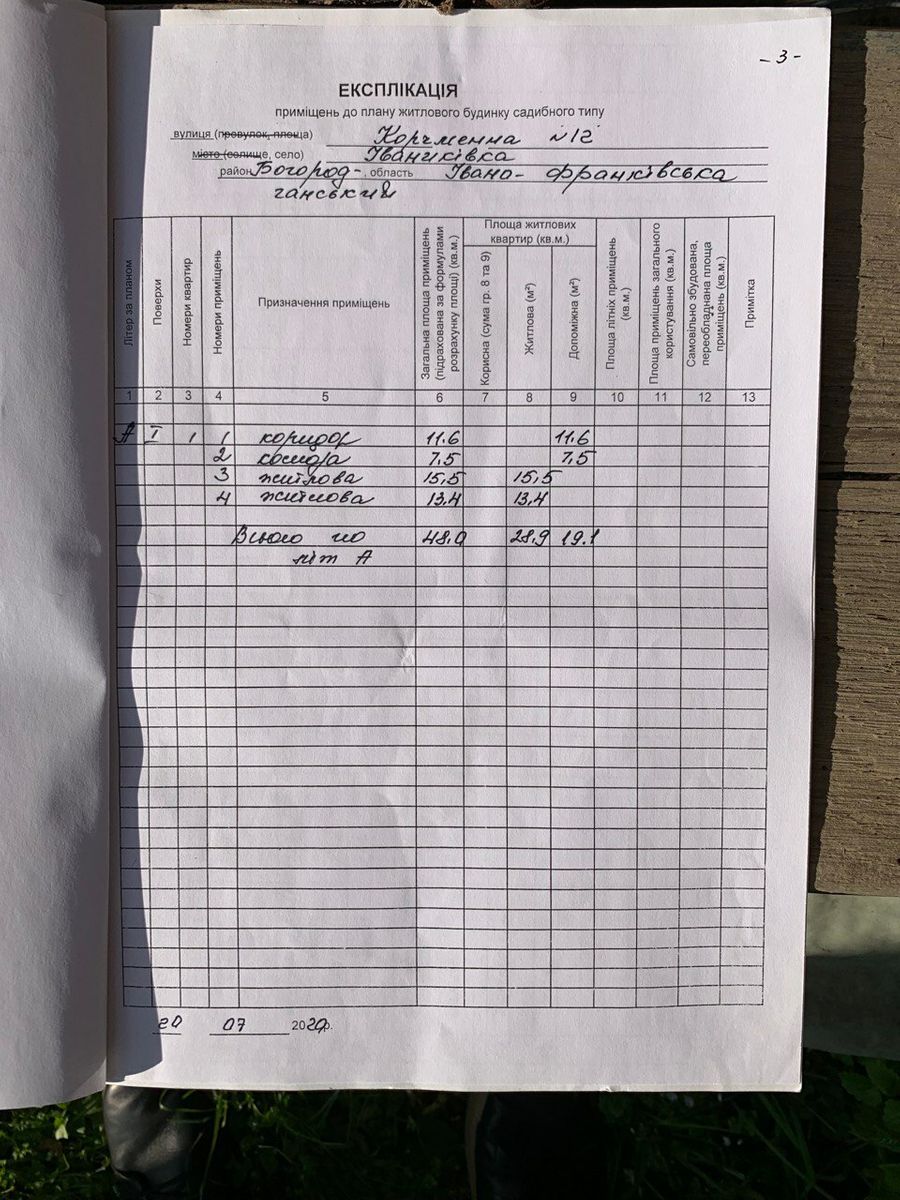 - 3 -
ЕКСПЛІКАЦІЯ
приміщень до плану житлового будинку садибного типу
вулиця (провулок, площа) Корчменна №12
місто (селище, село) Іваниківка
район Богород- , область Івано- Франківська
чанський
Літер за планом
Поверхи
Номери квартир
Номери приміщень
Призначення приміщень
Загальна площа приміщень (підрахована за формулами розрахунку площі) (кв.м.)
Площа житлових квартир (кв.м.)
Корисна (сума гр. 8 та 9)
Житлова (м²)
Допоміжна (м²)
Площа літніх приміщень (кв.м.)
Площа приміщень загального користування (кв.м.)
Самовільно збудована, переобладнана площа приміщень (кв.м.)
Примітка
1 2 3 4 5 6 7 8 9 10 11 12 13
А І 1 1 коридор 11.6 11.6
2 комора 7.5 7.5
3 житлова 15,5 15,5
4 житлова 13,4 13,4
Всього по 48.0 28,9 19.1
літ А
20 07 2020р.